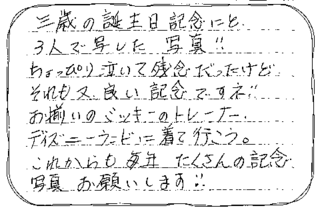 三歳の誕生日記念にと
3人で写した 写真!!
ちょっぴり泣いて残念だったけど
それも又良い記念ですネ!!
お揃いのミッキーのトレーナー
ディズニーランドに着て行こう。
これからも毎年 たくさんの記念
写真 お願いします!!